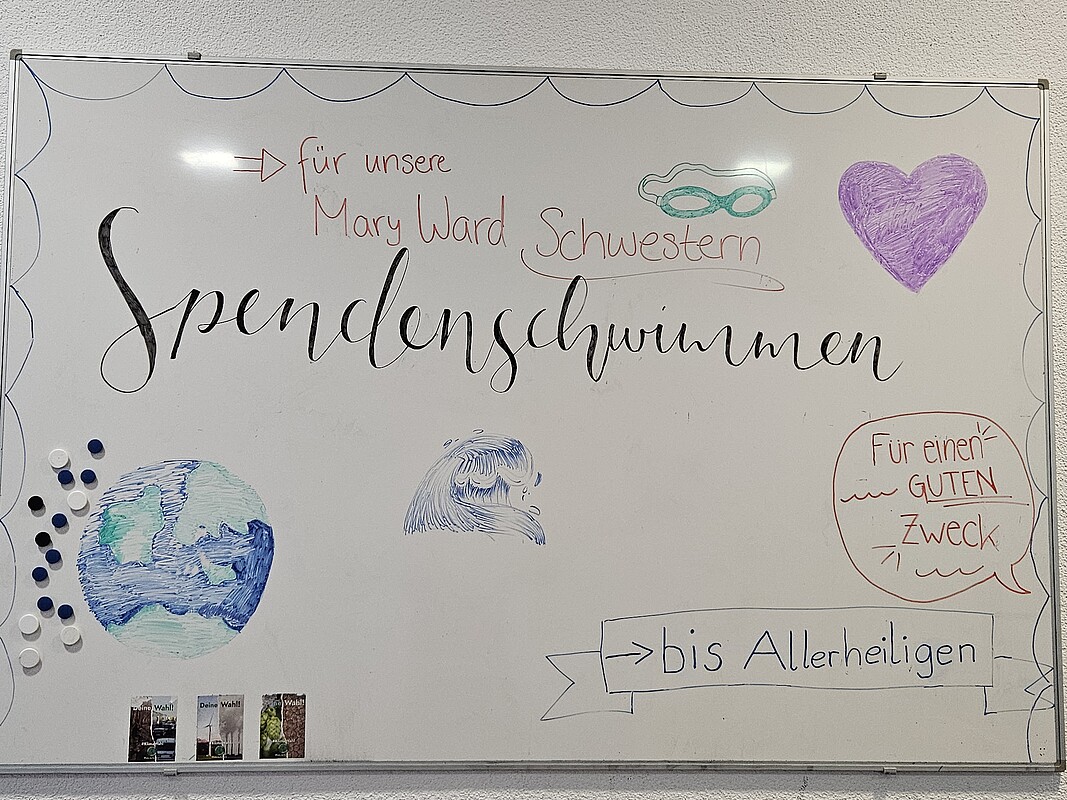 für unsere
Mary Ward Schwestern
Spendenschwimmen
Für einen
GUTEN
Zweck
bis Allerheiligen
Deine Wahl!
Deine Wahl!
Deine Wahl!